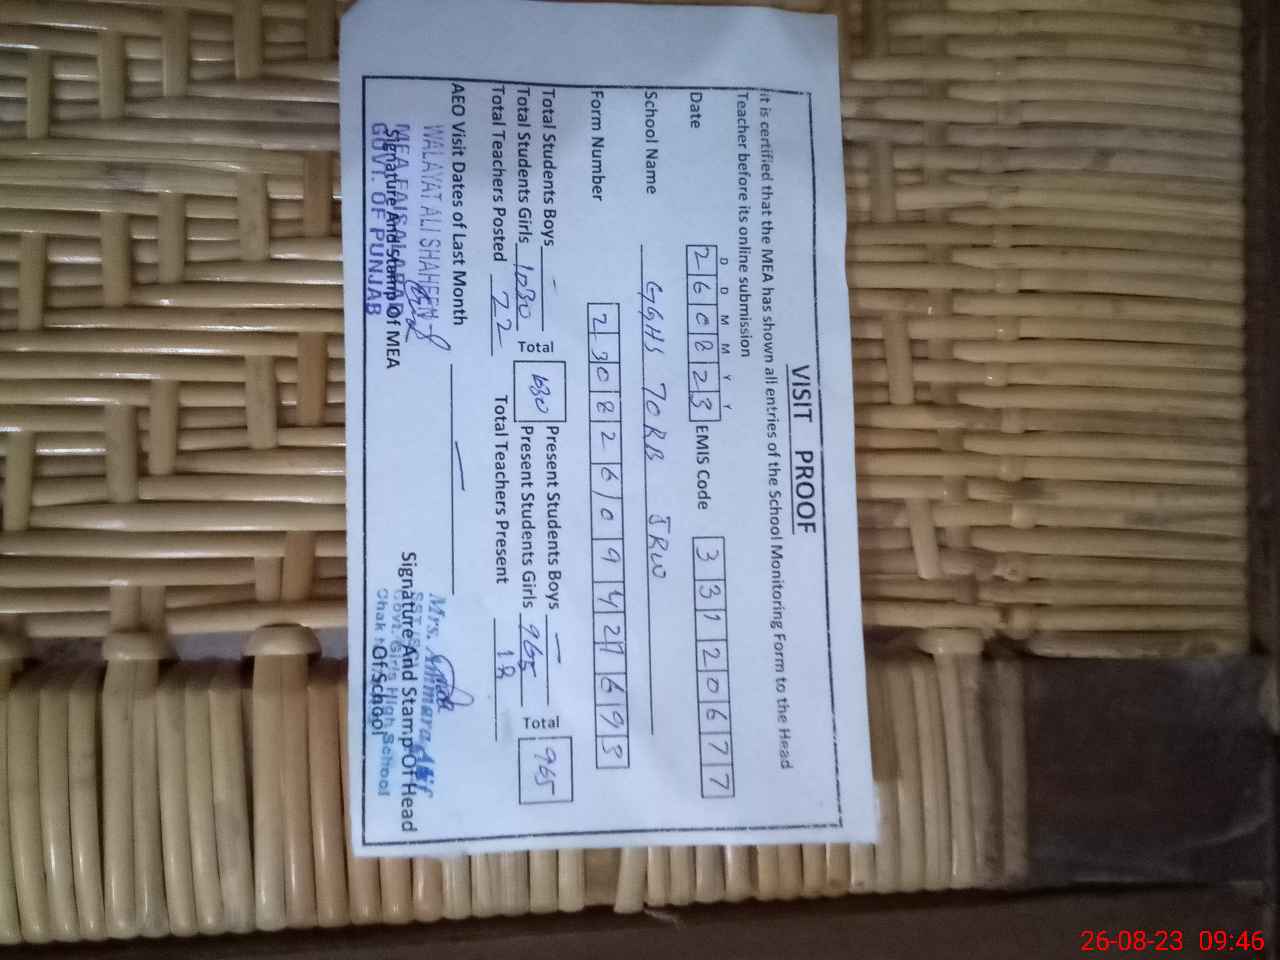 VISIT PROOF
it is certified that the MEA has shown all entries of the School Monitoring Form to the Head
Teacher before its online submission
D D M M Y Y
Date 2 6 0 8 2 3 EMIS Code 3 3 1 2 0 6 7 7
School Name GGHS 70 RB JRW
Form Number 2 3 0 8 2 6 0 9 4 2 1 6 9 3
Total Students Boys - Present Students Boys —
Total Students Girls 1080 Total 1080 Present Students Girls 965 Total 965
Total Teachers Posted 22 Total Teachers Present 18
AEO Visit Dates of Last Month —
WALAYAT ALI SHAHEEN
MEA FAISALABAD
Signature And Stamp Of MEA
GOVT. OF PUNJAB
Mrs. Ammara
Signature And Stamp Of Head
Govt. Girls High School
Of School
Chak
26-08-23 09:46